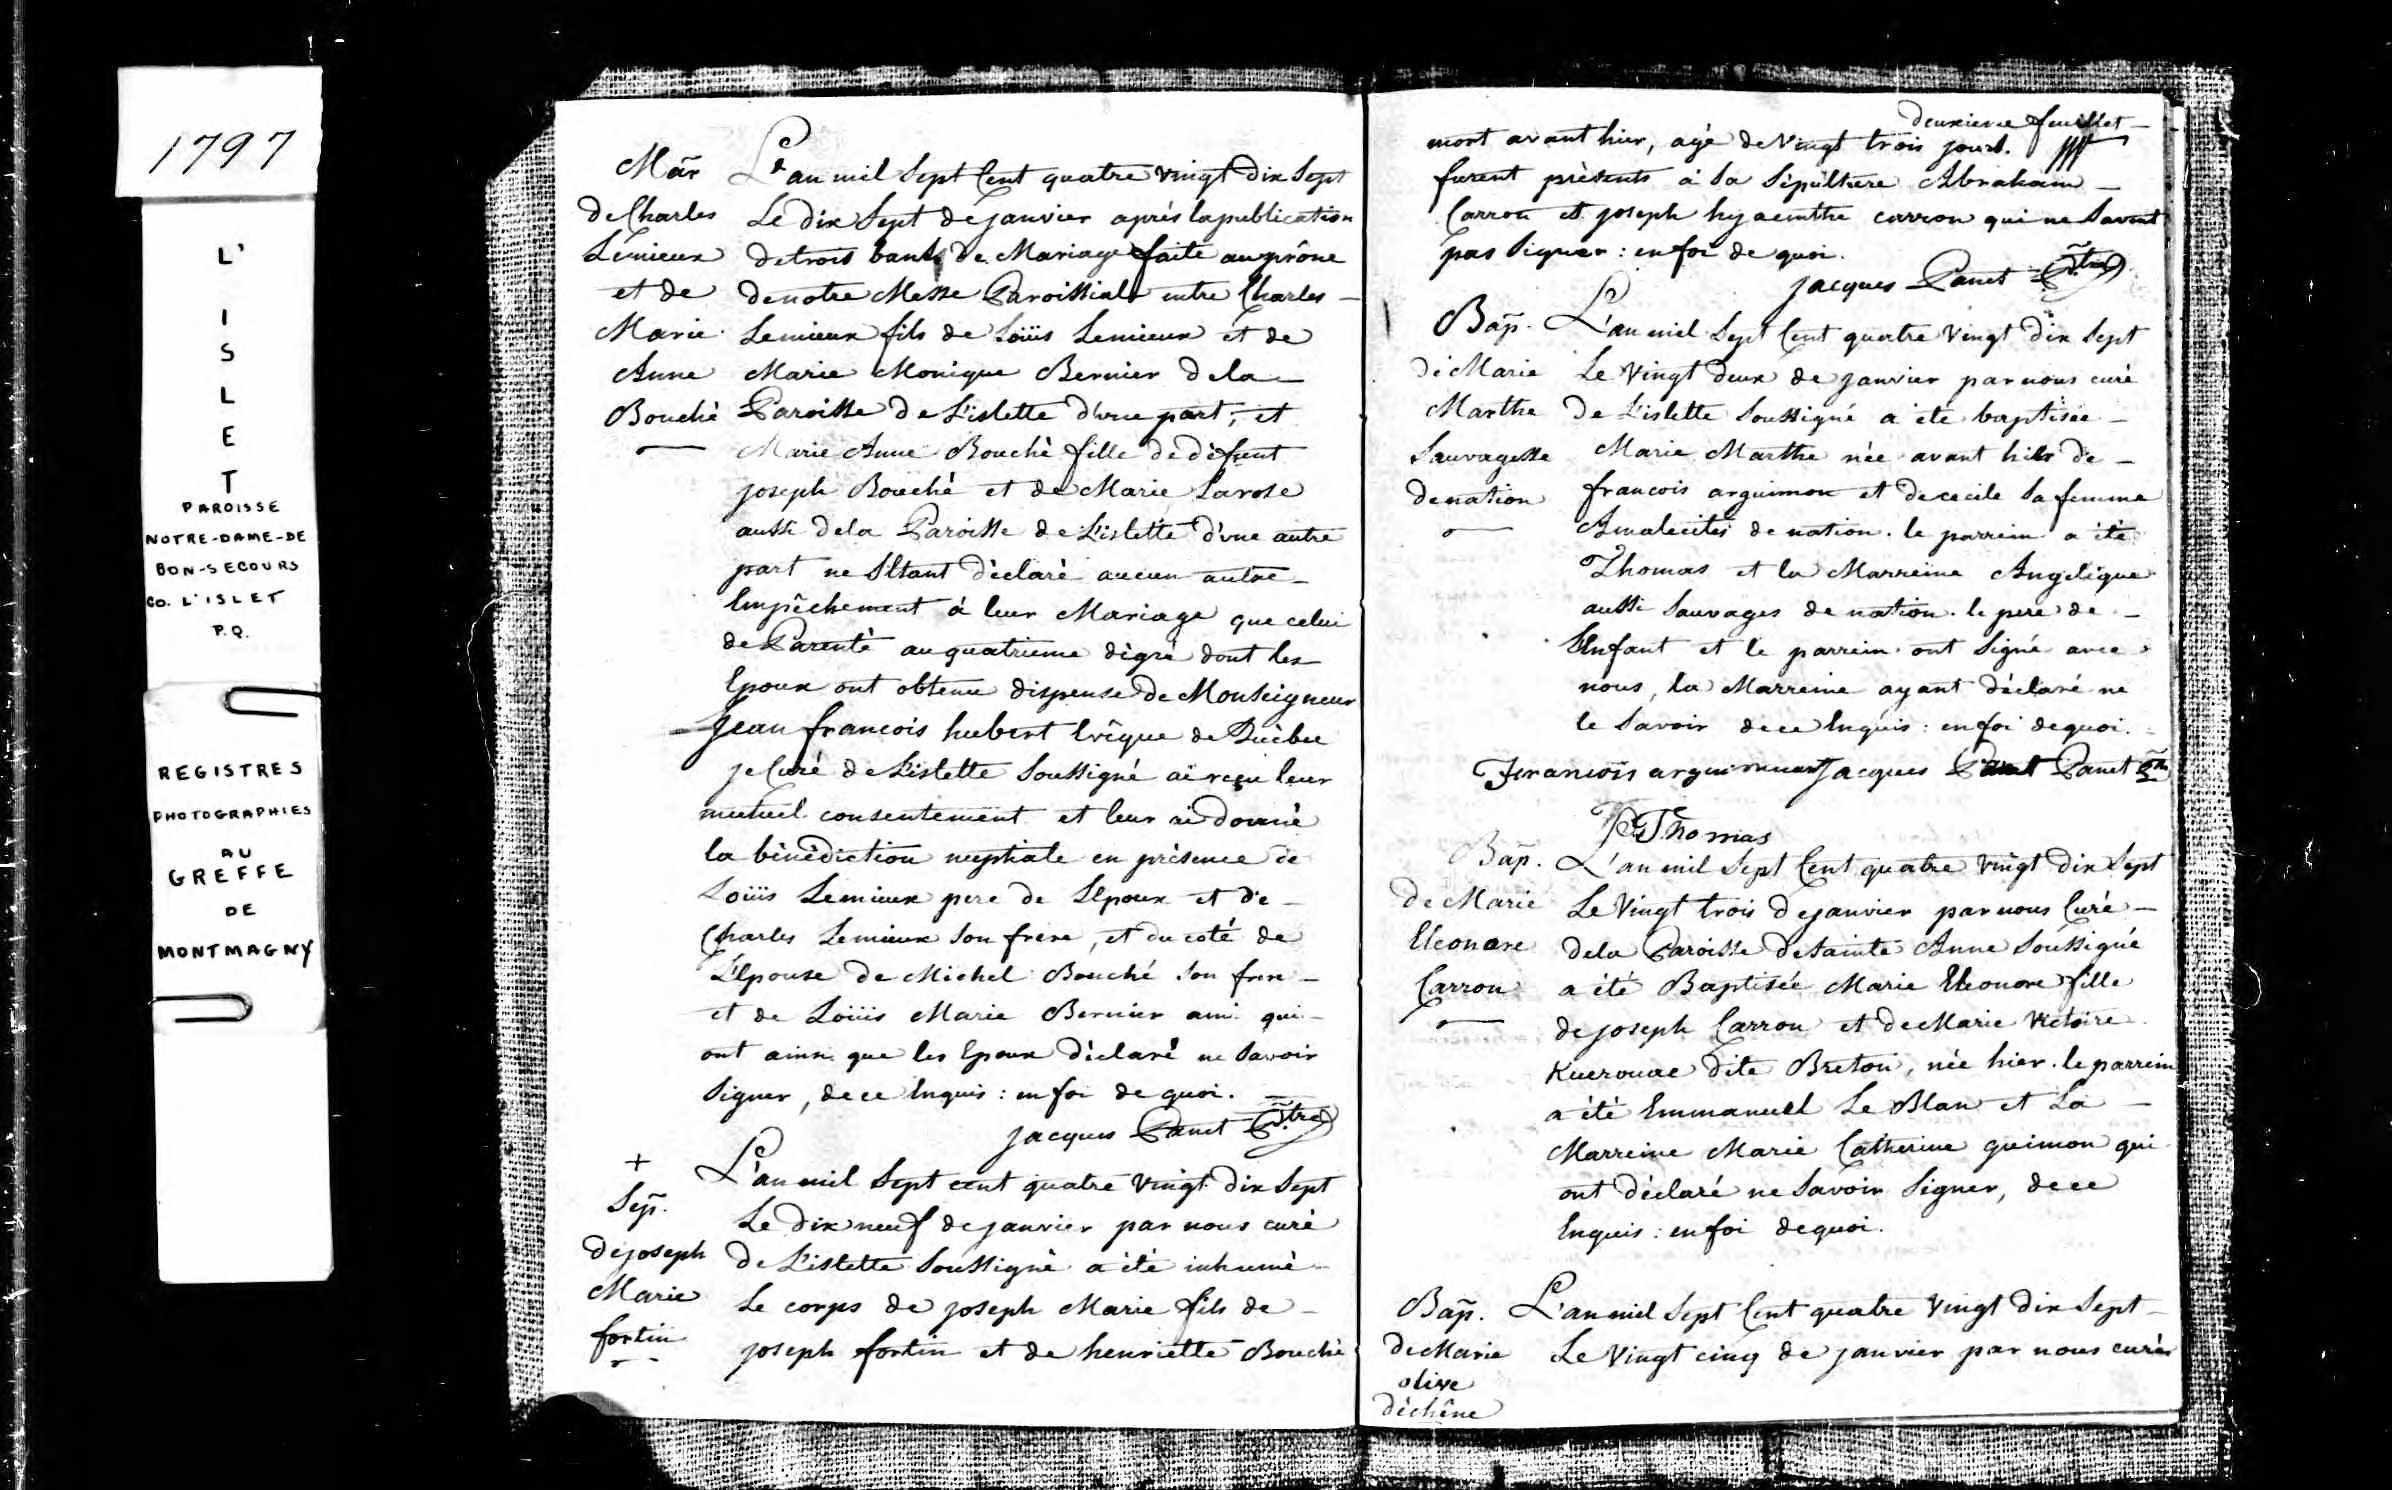 1797
L'
I
S
L
E
T
PAROISSE
NOTRE-DAME-DE
BON-SECOURS
CO. L'ISLET
P.Q.
REGISTRES
PHOTOGRAPHIES
AU
GREFFE
DE
MONTMAGNY
Mar̃
de Charles
Lémieux
et de
Marie
Anne
Bouché
L'an mil Sept Cent quatre vingt dix Sept
Le dix Sept de janvier aprés la publication
de trois bans de Mariage faite au prône
de notre Messe Paroissiale entre Charles
Lemieux fils de Loüis Lemieux et de
Marie Monique Bernier de la
Paroisse de L'islette d'une part, et
Marie Anne Bouché fille de défunt
joseph Bouché et de Marie Larose
aussi de la Paroisse de L'islette d'une autre
part ne S'Etant déclaré aucun autre
Empêchement à leur Mariage que celui
de Parenté au quatrieme dégré dont les
Epoux ont obtenu dispense de Monseigneur
Jean francois hubert Evêque de Québec
je Curé de L'islette Soussigné ai reçu leur
mutuel consentement et leur ai donné
la bénédiction nuptiale en présence de
Loüis Lemieux pere de L'Epoux et de
Charles Lemieux Son frere, et du coté de
L'Epouse de Michel Bouché Son frere
et de Loüis Marie Bernier ami qui
ont ainsi que les Epoux déclaré ne Savoir
Signer, de ce Enquis : en foi de quoi.
jacques Panet P̃tre
+
Sep̃.
de joseph
Marie
fortin
L'an mil Sept cent quatre vingt dix Sept
Le dix neuf de janvier par nous curé
de L'islette Soussigné a été inhumé
Le corps de joseph Marie fils de
joseph fortin et de henriette Bouché
deuxieme feuillet
mort avant hier, agé de Vingt trois jours.
furent présents à Sa Sépulture Abraham
Carron et joseph hyacinthe carron qui ne Savent
pas Signer : en foi de quoi.
jacques Panet P̃tre
Bap̃.
de Marie
Marthe
Sauvagesse
de nation
L'an mil Sept Cent quatre Vingt dix Sept
Le Vingt deux de janvier par nous curé
de L'islette Soussigné a été baptisée
Marie Marthe née avant hier de
francois arguimon et de cecile Sa femme
Amalecites de nation. le parrein a été
Thomas et la Marreine Angelique
aussi Sauvages de nation. le pere de
L'Enfant et le parrein ont Signé avec
nous, la Marreine ayant déclaré ne
le Savoir de ce Enquis : en foi de quoi.
Jacques Panet
Thomas
Bap̃.
de Marie
Eleonore
Carron
L'an mil Sept Cent quatre vingt dix Sept
Le Vingt trois de janvier par nous Curé
de la Paroisse de Sainte Anne Soussigné
a été Baptisée Marie Eleonore fille
de joseph Carron et de Marie Victoire
Kuerouac dite Breton, née hier. le parrein
a été Emmanuel Le Blan et La
Marreine Marie Catherine guimon qui
ont déclaré ne Savoir Signer, de ce
Enquis : en foi de quoi.
Bap̃.
de Marie
olive
déchêne
L'an mil Sept Cent quatre Vingt dix Sept
Le Vingt cinq de janvier par nous curé